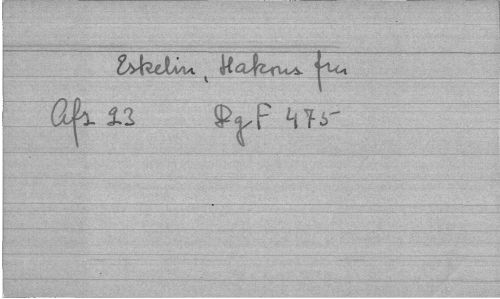 Eskelin, Hakons fru
Afz 23 DgF 475